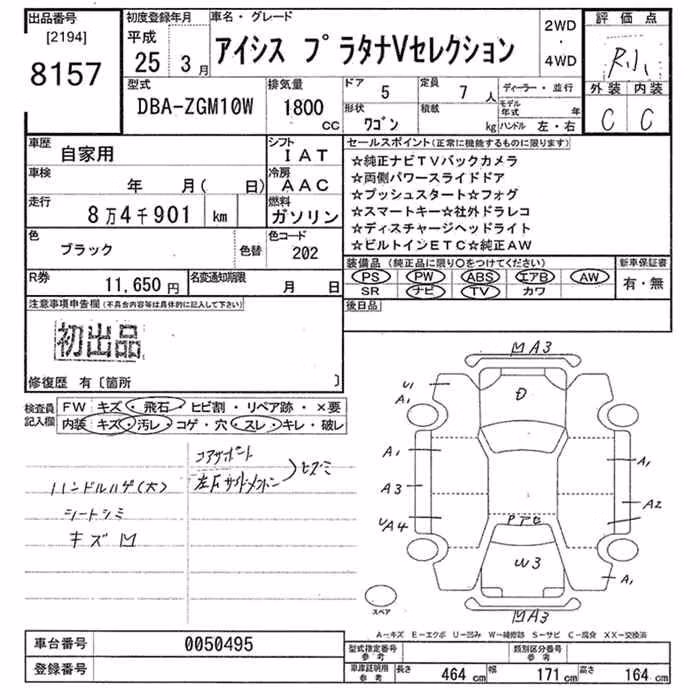 出品番号
[2194]
8157
初度登録年月
平成
25 3月
車名・グレード
アイシス プラタナVセレクション
2WD
・
4WD
評価点
R
外装 内装
C C
型式
DBA-ZGM10W
排気量
1800
cc
ドア 5
定員 7人
ディーラー・並行
形状 ワゴン
積載 kg
モデル年式 年
ハンドル 左・右
車歴
自家用
シフト
IAT
車検
年 月( 日)
冷房
AAC
走行
8万4千901 km
燃料
ガソリン
色
ブラック
色替
色コード
202
R券
11,650円
名変通知期限
月 日
セールスポイント(正常に機能するものに限ります)
☆純正ナビTVバックカメラ
☆両側パワースライドドア
☆プッシュスタート☆フォグ
☆スマートキー☆社外ドラレコ
☆ディスチャージヘッドライト
☆ビルトインETC☆純正AW
装備品(純正品に限り○をつけてください)
PS PW ABS エアB AW
SR ナビ TV カワ
新車保証書
有・無
後日品
注意事項申告欄(不具合内容等は具体的に記入して下さい)
初出品
修復歴 有〔箇所 〕
検査員
記入欄
FW キズ・飛石・ヒビ割・リペア跡・×要
内装 キズ・汚レ・コゲ・穴・スレ・キレ・破レ
コアサポート
左Fサイドメンバー
ヒズミ
ハンドルハゲ(大)
シートシミ
キズ
MA3
U1
A1
A1
A3
UA4
A1
A2
A1
W3
MA3
スペア
A-キズ E-エクボ U-凹み W-補修跡 S-サビ C-腐食 XX-交換済
車台番号 0050495
登録番号
型式指定番号
参考
類別区分番号
参考
車庫証明用
参考
長さ 464 cm 幅 171 cm 高さ 164 cm